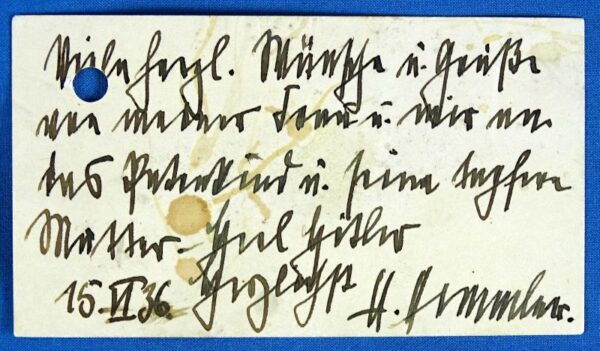 Viele herzl. Wünsche u. Grüße
von meiner Frau u. mir an
das Patenkind u. seine tapfere
Mutter. Heil Hitler
15.VI 36. Herzlichst H. Himmler.